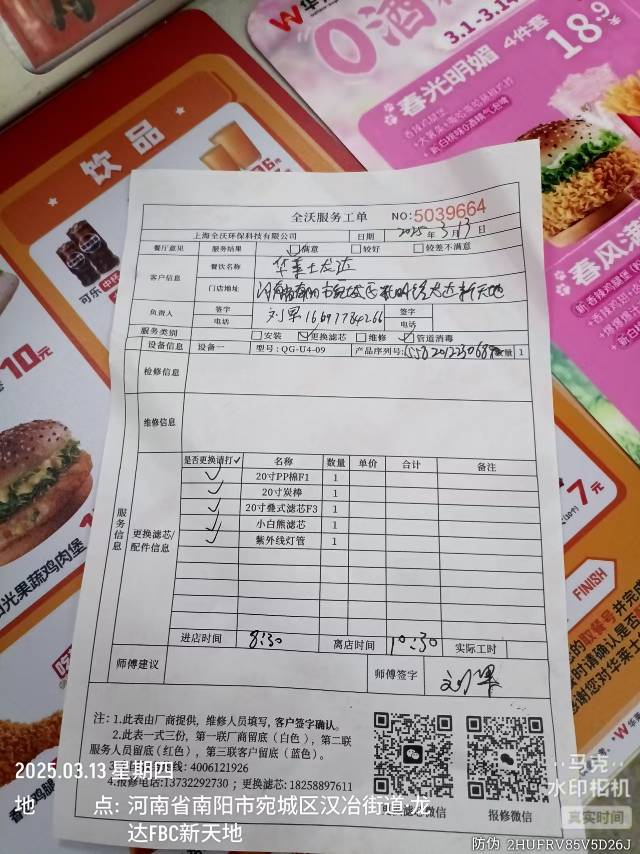 华
0酒
3.1-3.14
春光明媚 4件套
18.9
饮品
可乐
10元
7元
FINISH
阳光果蔬鸡肉堡
春风满
全沃服务工单 NO:5039664
上海全沃环保科技有限公司 日期 2025年3月13日
餐厅意见 服务结果 满意 较好 较差不满意
客户信息 餐饮名称 华莱士龙达
门店地址
负责人 签字 签字
电话 电话
服务类别 安装 更换滤芯 维修 管道消毒
设备信息 设备一 型号: QG-U4-09 产品序列号: 数量 1
检修信息
维修信息
服务信息
更换滤芯/配件信息
是否更换请打✓ 名称 数量 单价 合计 备注
✓ 20寸PP棉F1 1
✓ 20寸炭棒 1
✓ 20寸叠式滤芯F3 1
✓ 小白熊滤芯 1
✓ 紫外线灯管 1
进店时间 8:30 离店时间 10:30 实际工时
师傅建议 师傅签字
注: 1.此表由厂商提供, 维修人员填写, 客户签字确认。
2.此表一式三份, 第一联厂商留底 (白色), 第二联
服务人员留底 (红色), 第三联客户留底 (蓝色)。
热线: 4006121926
4.报修电话: 13732292730; 更换滤芯: 18258897611
微信
报修微信
2025.03.13 星期四
地 点: 河南省南阳市宛城区汉冶街道·龙
达FBC新天地
马克
水印相机
真实时间
防伪 2HUFRV85V5D26J